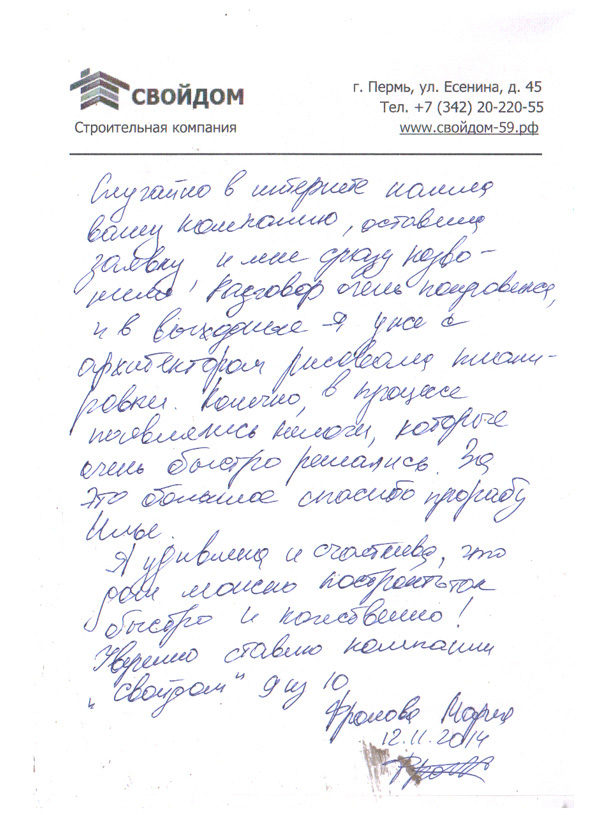 СВОЙДОМ
Строительная компания
г. Пермь, ул. Есенина, д. 45
Тел. +7 (342) 20-220-55
www.свойдом-59.рф
Случайно в интернете нашла
вашу компанию, оставила
заявку и мне сразу позво-
нили! Разговор очень понравился,
и в выходные я уже с
архитектором рисовала плани-
ровки. Конечно, в процессе
появлялись мелочи, которые
очень быстро решались. За
это большое спасибо прорабу
Илье.
Я удивлена и счастлива, что
дом можно построить так
быстро и качественно!
Уверенно ставлю компании
"Свойдом" 9 из 10
Мария
12.11.2014